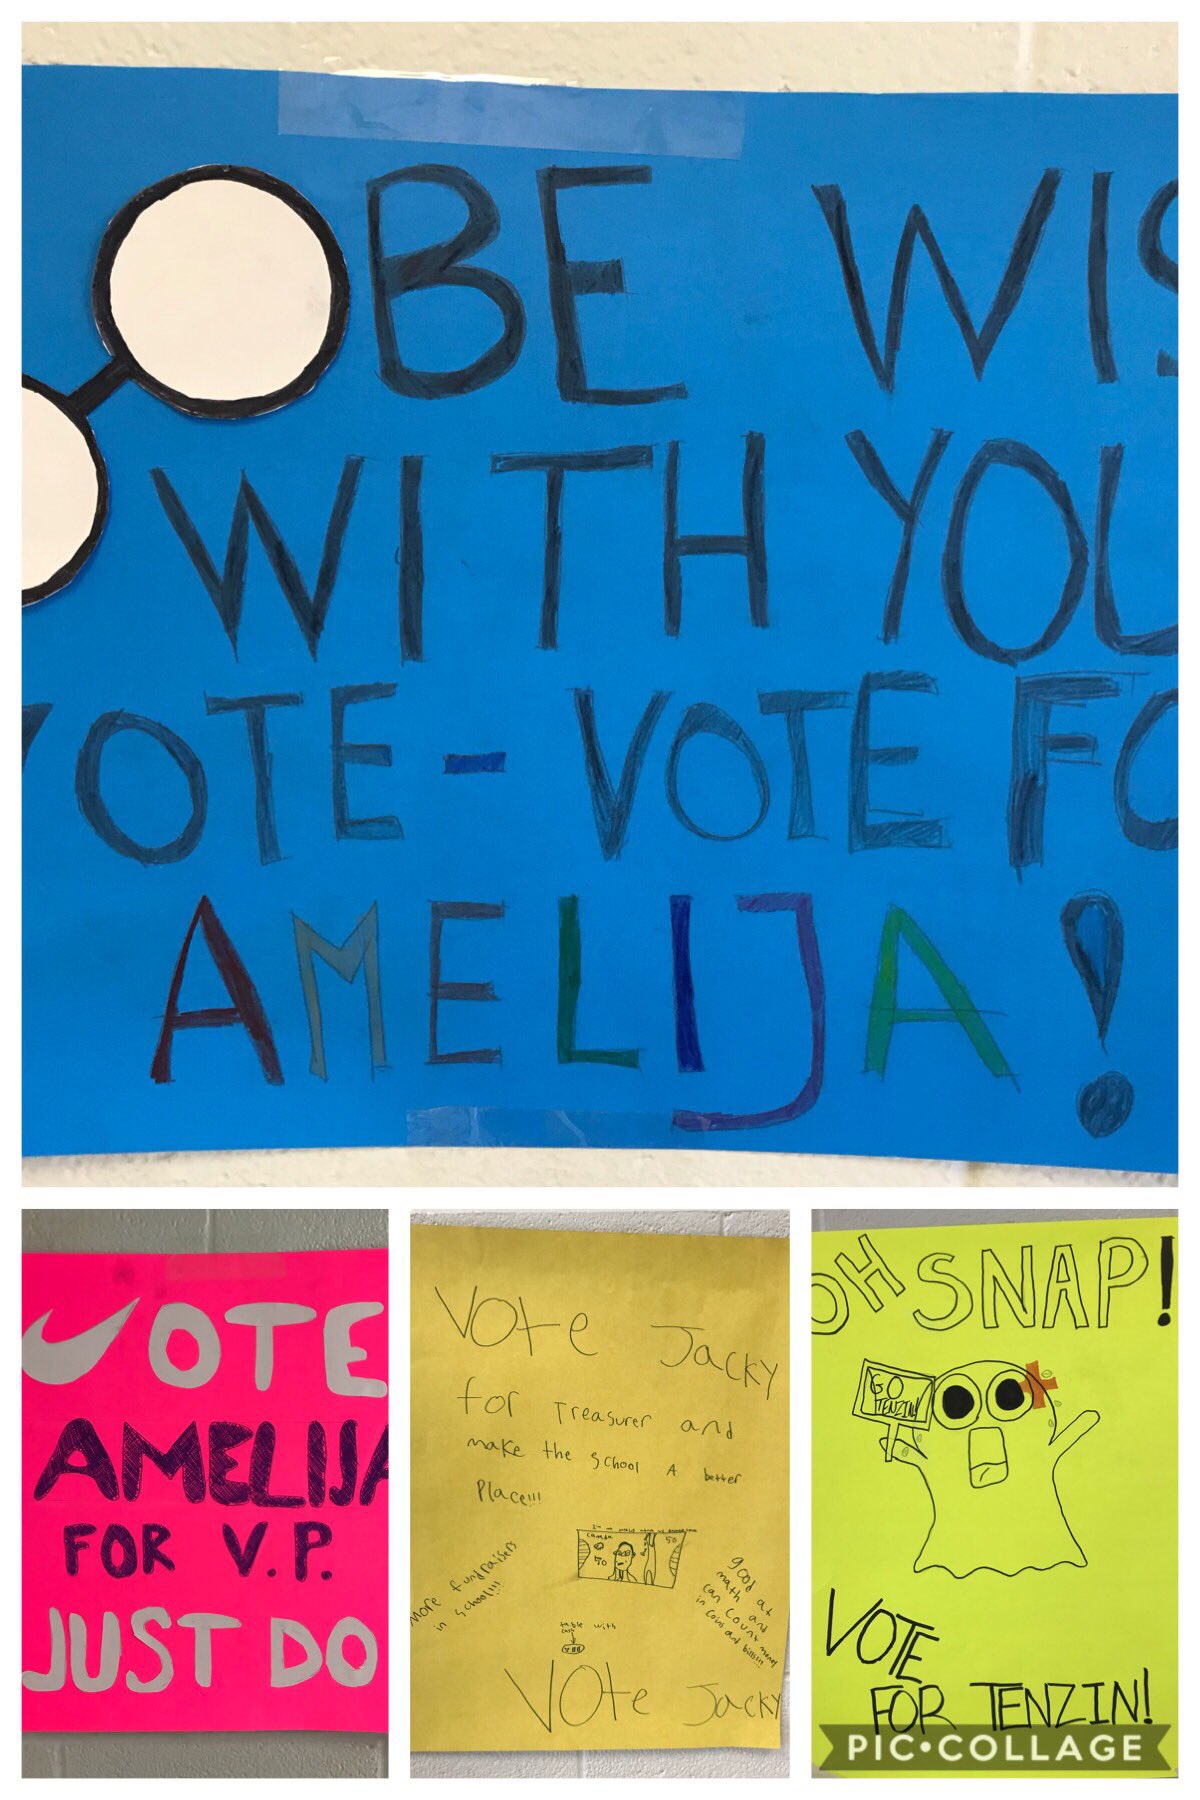 BE WIS
WITH YOU
VOTE - VOTE FO
AMELIJA!
VOTE
AMELIJA
FOR V.P.
JUST DO
Vote Jacky
for Treasurer and
make the school A better
Place!!!
more fundraisers
in school!!!
Canada
50
50
good at
math and
can count money
in coins and bills!!!
table with
cash
Vote Jacky
OH SNAP!
GO
TENZIN!
VOTE
FOR TENZIN!
PIC•COLLAGE